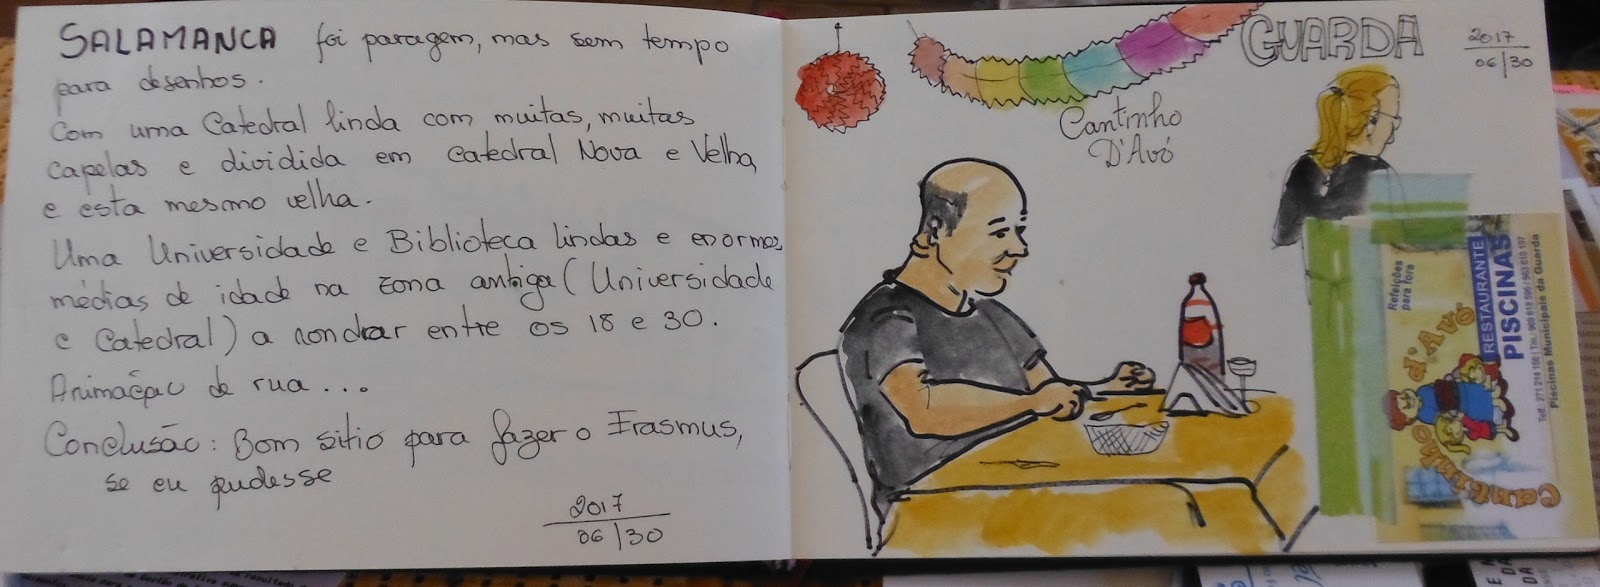 SALAMANCA foi paragem, mas sem tempo
para desenhos.
Com uma Catedral linda com muitas, muitas
capelas e dividida em Catedral Nova e Velha,
e esta mesmo velha.
Uma Universidade e Biblioteca lindas e enormes,
médias de idade na zona antiga (Universidade
e Catedral) a rondar entre os 18 e 30.
Animação de rua...
Conclusão: Bom sítio para fazer o Erasmus,
se eu pudesse
2017
06/30
GUARDA
2017
06/30
Cantinho
D'Avó
Cantinho d'Avó
Refeições
para fora
RESTAURANTE
PISCINAS
Piscinas Municipais da Guarda